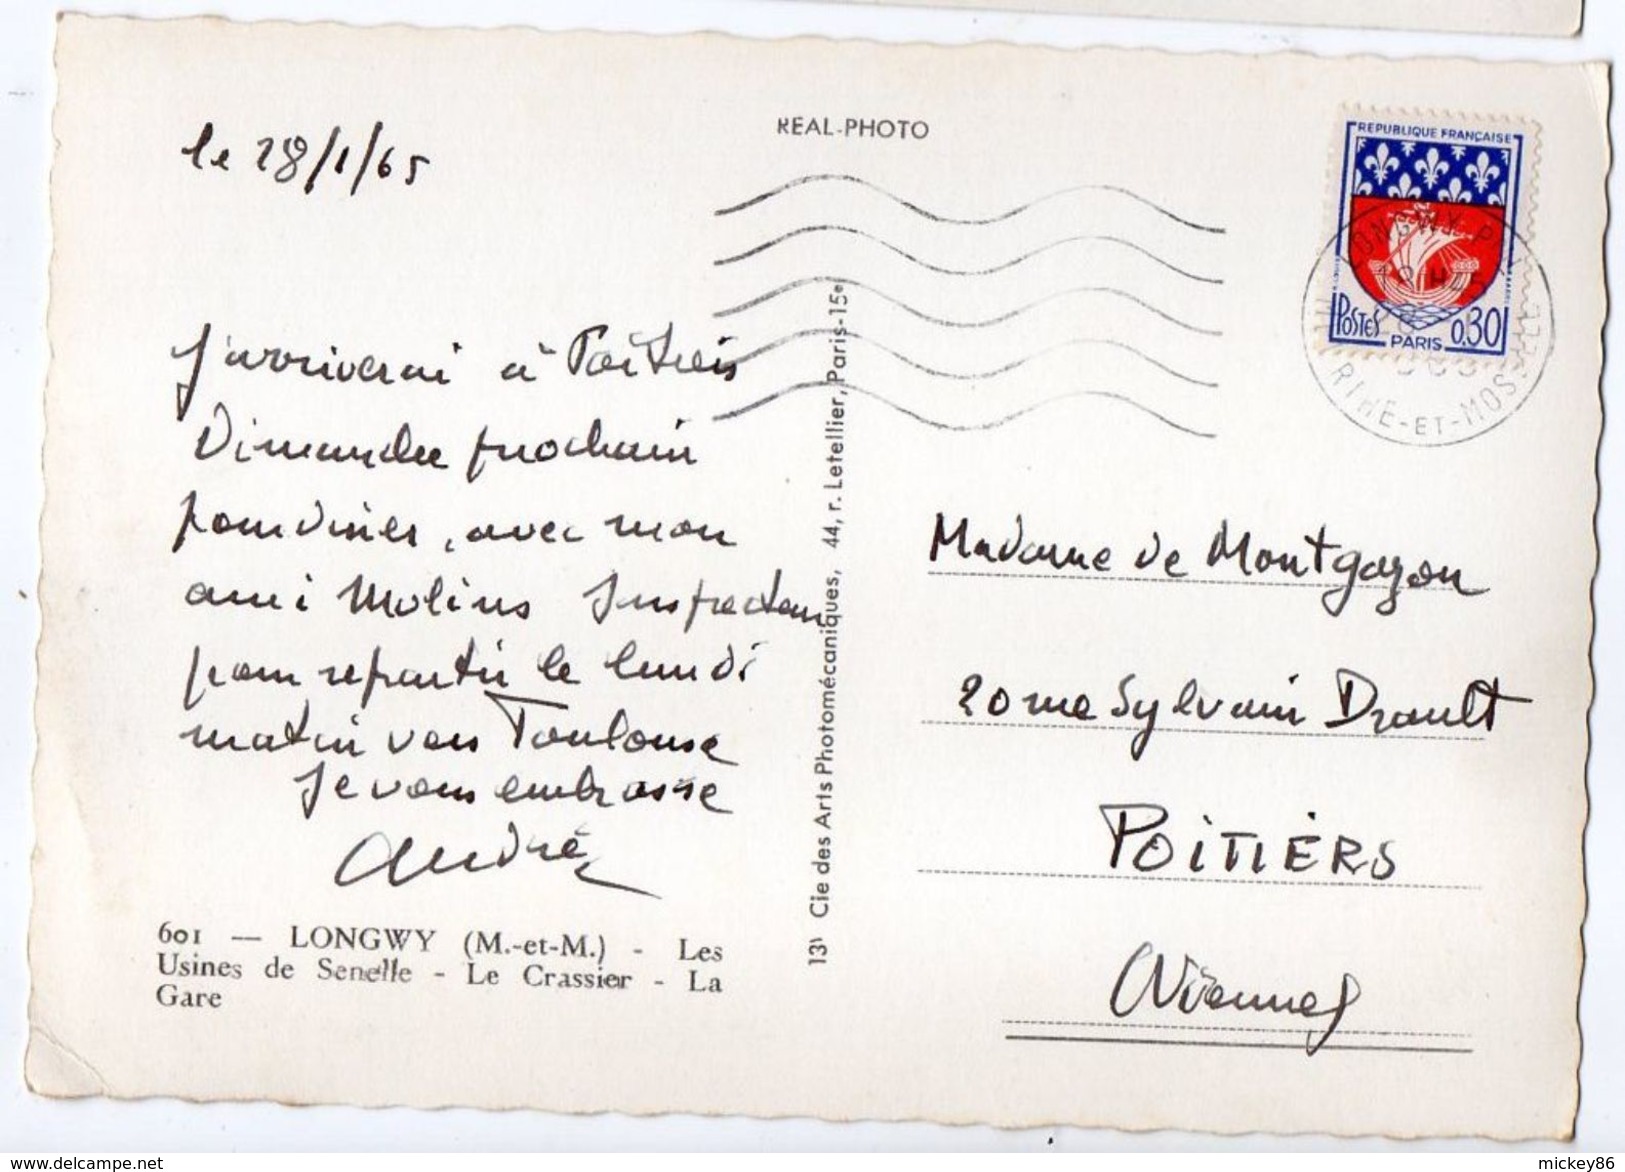 le 28/1/65
J'arriverai à Poitiers
Dimanche prochain
pour dîner, avec mon
ami Molins Inspecteur
pour repartir le lundi
matin vers Toulouse
Je vous embrasse
André
601 — LONGWY (M.-et-M.) - Les
Usines de Senelle - Le Crassier - La
Gare
REAL-PHOTO
Cie des Arts Photomécaniques, 44, r. Letellier, Paris-15e
REPUBLIQUE FRANÇAISE
POSTES 0,30
PARIS
LONGWY P
18 H45
RTHE-ET-MOSELLE
Madame de Montgazon
20 rue Sylvain Drault
POITIERS
(Vienne)
delcampe.net
mickey86